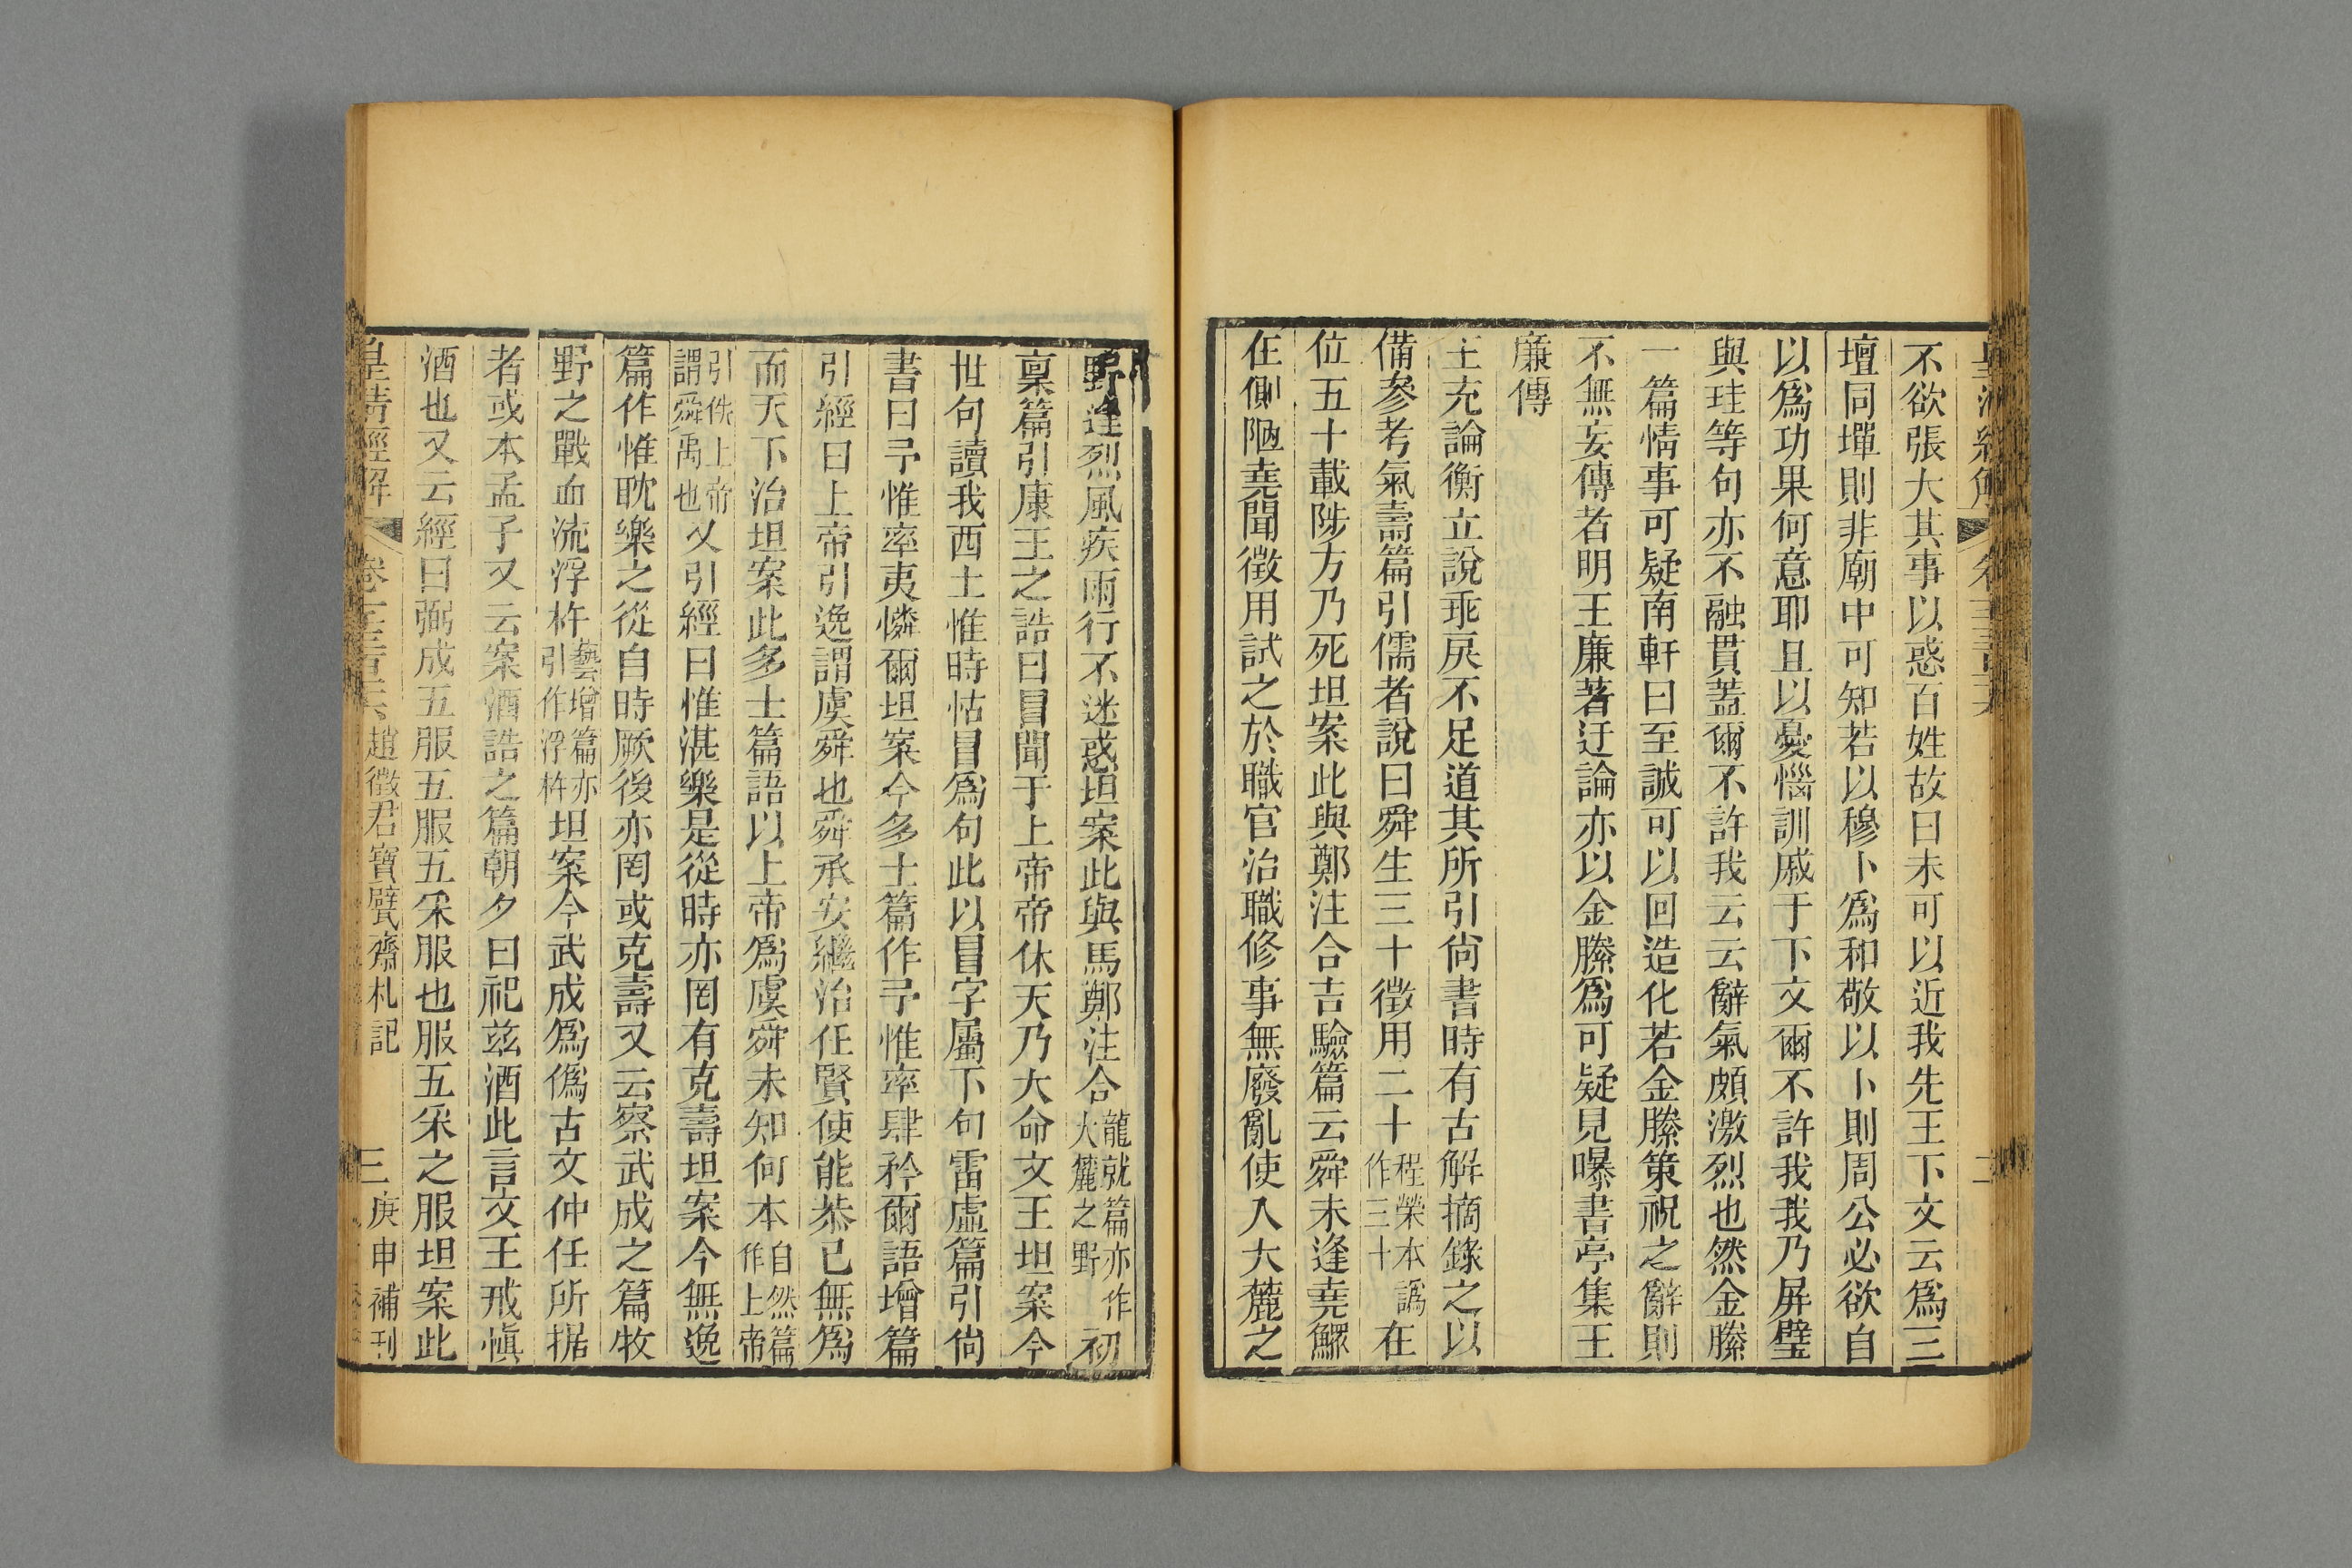 不欲張大其事以惑百姓故曰未可以近我先王下文云爲三
壇同墠則非廟中可知若以穆卜爲和敬以卜則周公必欲自
以爲功果何意耶且以憂惱訓戚于下文爾不許我我乃屏璧
與珪等句亦不融貫蓋爾不許我云云辭氣頗激烈也然金縢
一篇情事可疑南軒曰至誠可以回造化若金縢策祝之辭則
不無妄傳者明王廉著迂論亦以金縢爲可疑見曝書亭集王
廉傳
王充論衡立說乖戾不足道其所引尙書時有古解摘錄之以
備參考氣壽篇引儒者說曰舜生三十徵用二十程榮本譌作三十在
位五十載陟方乃死坦案此與鄭注合吉驗篇云舜未逢堯鰥
在側陋堯聞徵用試之於職官治職修事無廢亂使入大麓之
野逢烈風疾雨行不迷惑坦案此與馬鄭注合龍就篇亦作大麓之野初
稟篇引康王之誥曰冒聞于上帝帝休天乃大命文王坦案今
世句讀我西土惟時怙冒爲句此以冒字屬下句雷虛篇引尙
書曰予惟率夷憐爾坦案今多士篇作予惟率肆矜爾語增篇
引經曰上帝引逸謂虞舜也舜承安繼治任賢使能恭己無爲
而天下治坦案此多士篇語以上帝爲虞舜未知何本自然篇作上帝
引佚上帝謂舜禹也又引經曰惟湛樂是從時亦罔有克壽坦案今無逸
篇作惟耽樂之從自時厥後亦罔或克壽又云察武成之篇牧
野之戰血流浮杵藝增篇亦引作浮杵坦案今武成爲僞古文仲任所据
者或本孟子又云案酒誥之篇朝夕曰祀茲酒此言文王戒愼
酒也又云經曰弼成五服五服五采服也服五采之服坦案此
皇清經解 趙徵君寶甓齋札記 三 庚申補刊